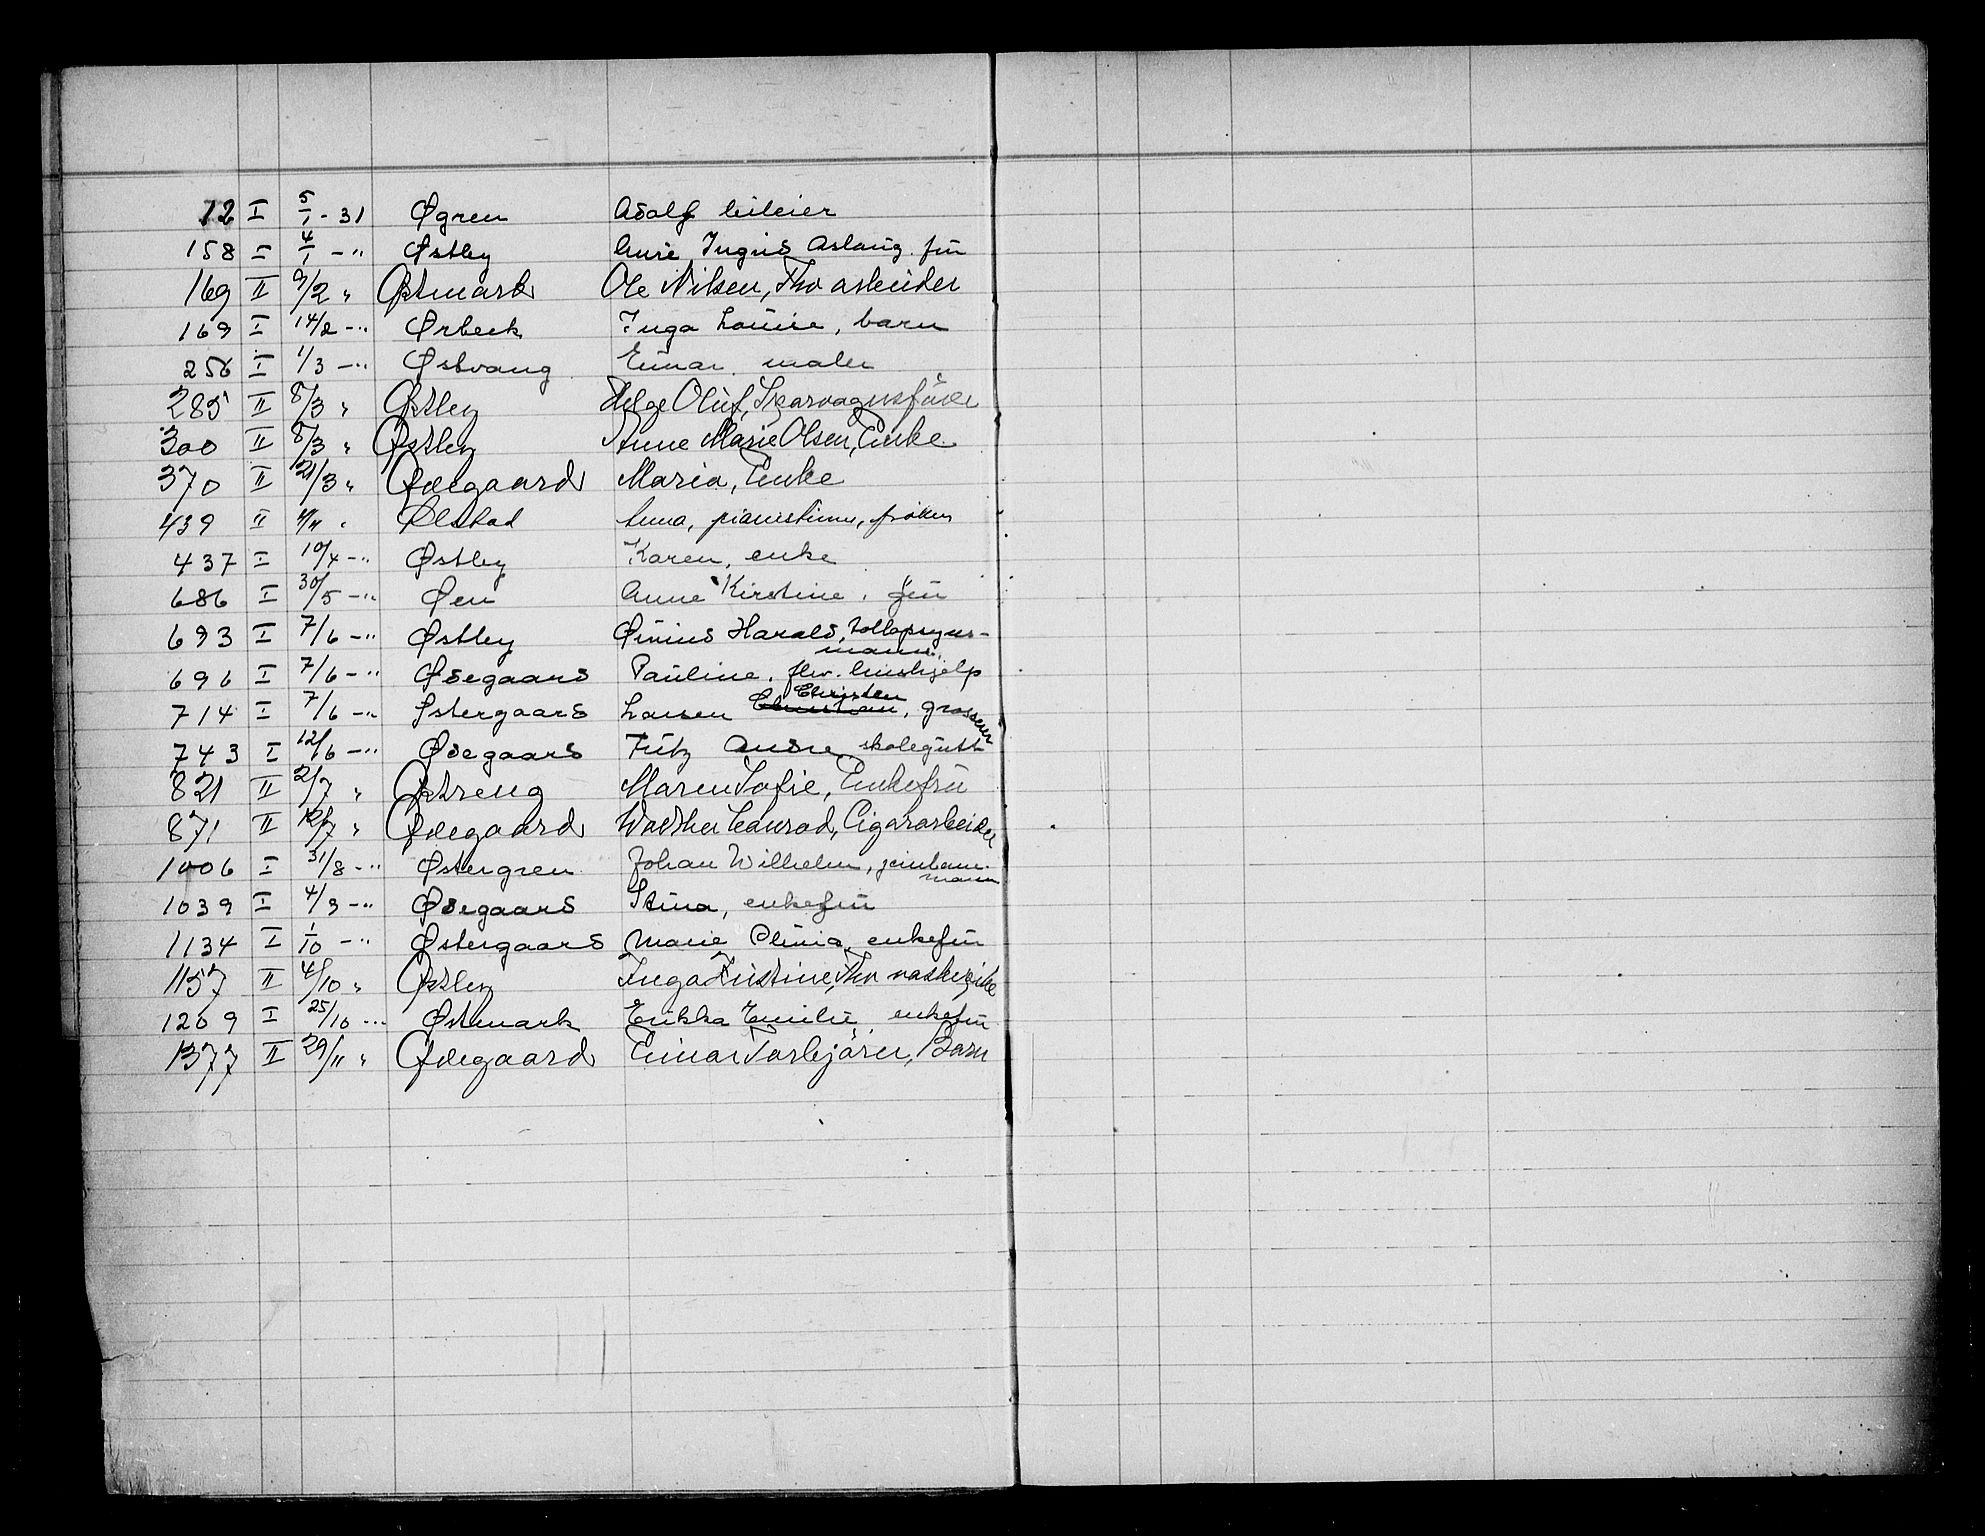 12 I 5/1 - 31 Øgren Adolf bileier
158 I 4/1 - " Østby Anne Ingrid Aslaug. frü
169 II 9/2 " Østmark Ole Nilsen, Fhv arbeider
169 I 14/2 - " Ørbeck Inga Louise, barn
256 I 1/3 - " Østvang Einar. maler
285 II 8/3 " Østby Helge Oluf, Sporvognsfører
300 II 8/3 " Østby Anne Marie Olsen, Enke
370 II 21/3 " Ødegaard Maria, Enke
439 II " Ølstad Anna, pianistinne, frøken
437 I 10/4 - " Østby Karen, enke
686 I 30/5 - " Øen Anne Kirstine, frü
693 I 7/6 - " Østby Harald, tollopsyns-
mann.
696 I 7/6 - " Ødegaard Pauline, fhv. hushjelp
714 I 7/6 - " Østergaard Larsen Christen, grosserer
743 I 12/6 - " Ødegaard Fritz Andre skolegutt
821 II 2/7 " Østreng Maren Sofie, Enkefrü
871 II 12/7 " Ødegaard Walther Conrad, Cigararbeider
1006 I 31/8 - " Østergren Johan Wilhelm, jernbane-
mann
1039 I 4/9 - " Ødegaard Stina, enkefrü
1134 I 1/10 - " Østergaard Marie enkefrü
1157 II 4/10 " Østby Inga Kristine, Fhv vaskepike
1209 I 25/10 - " Østmark Erikka Emilie, enkefrü
1377 II 29/11 " Ødegaard Einar Torbjörn, Barn